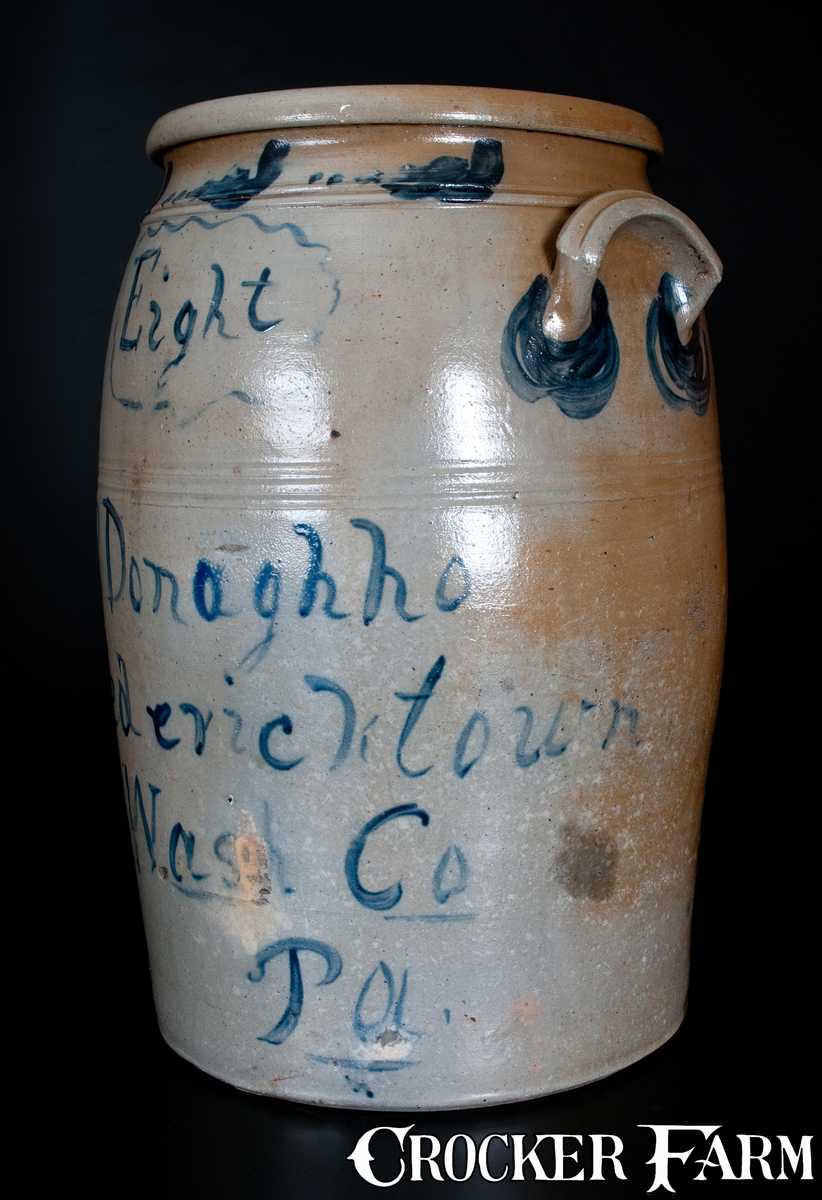 Eight
Donaghho
edericktown
Wash Co
Pa.
CROCKER FARM